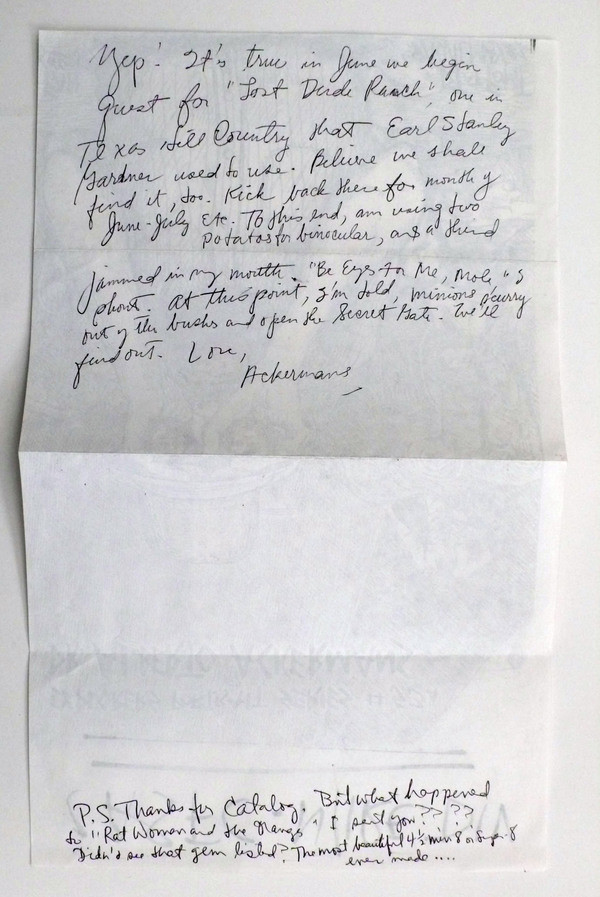 Yep! It's true in June we begin
Quest for "Lost Dude Ranch", one in
Texas Hill Country that Earl Stanley
Gardner used to use. Believe we shall
find it, too. Kick back there for month of
June-July etc. To this end, am using two
potatos for binocular, and a third
jammed in my mouth. "Be Eyes for Me, Mole" I
shout. At this point, I'm told, minions scurry
out of the bushs and open the Secret Gate. We'll
find out. Love,
Ackermans
P.S. Thanks for Catalog. But what happened
to "Rat Woman and the I sent you????
Didn't see that gem listed? The most beautiful 4½ min 8 or Super-8
ever made....